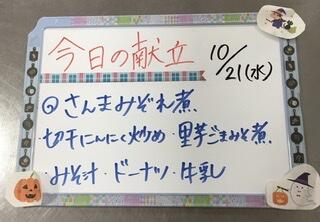 今日の献立 10/21(水)
㋨さんまみぞれ煮
・切干にんにく炒め・里芋ごまみそ煮
・みそ汁・ドーナツ・牛乳